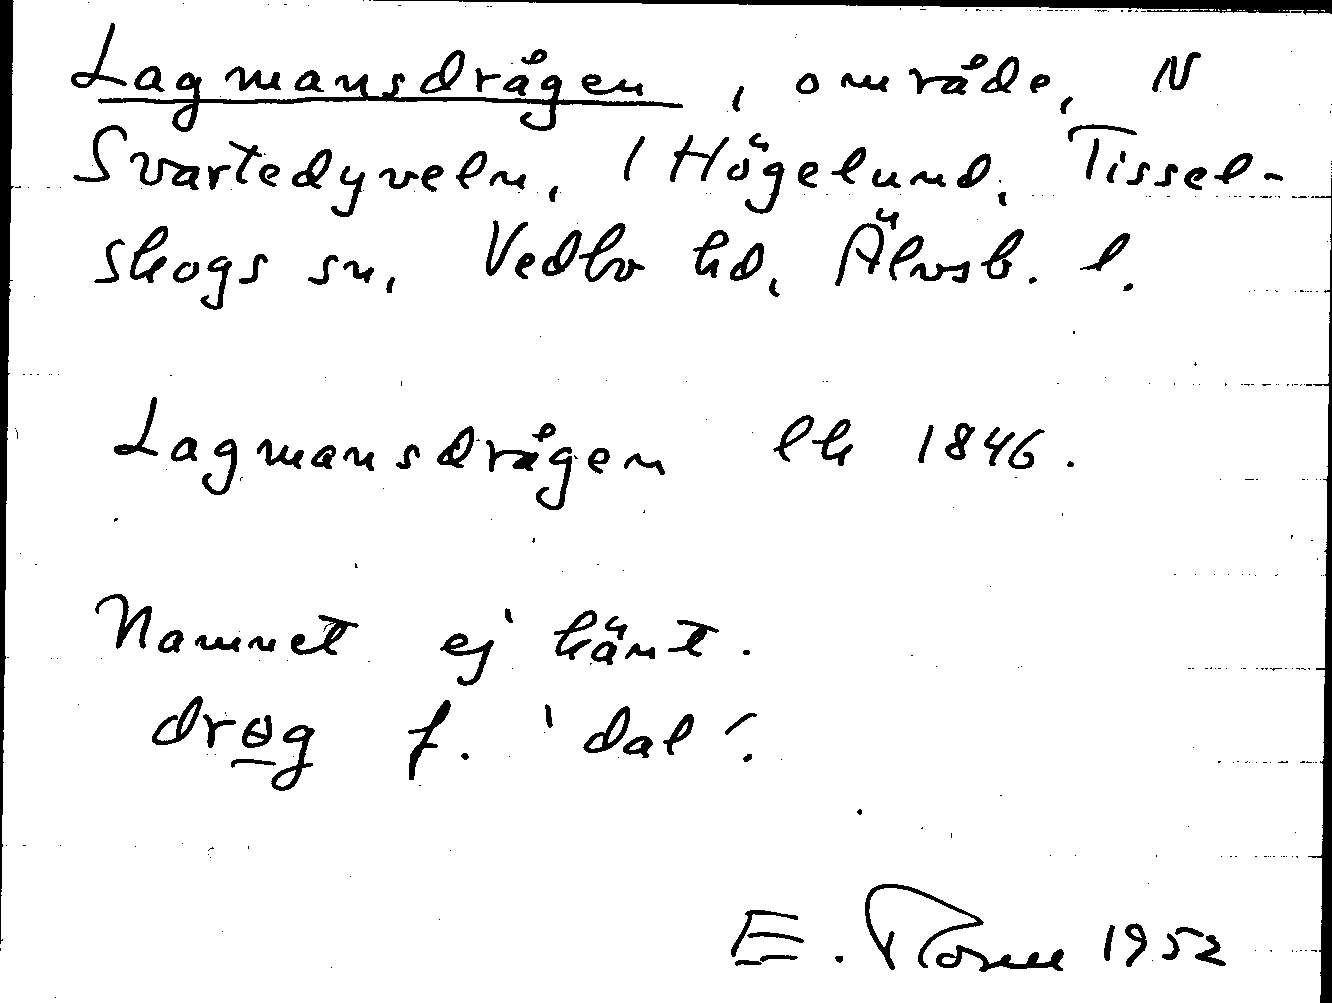 Lagmansdrågen, område, N
Svartedyveln, 1 Högelund, Tissel-
skogs sn, Vedbo hd, Älvsb. l.
Lagmansdrågen lh 1846.
Namnet ej känt.
drɵg f. 'dal'.
E. 1952